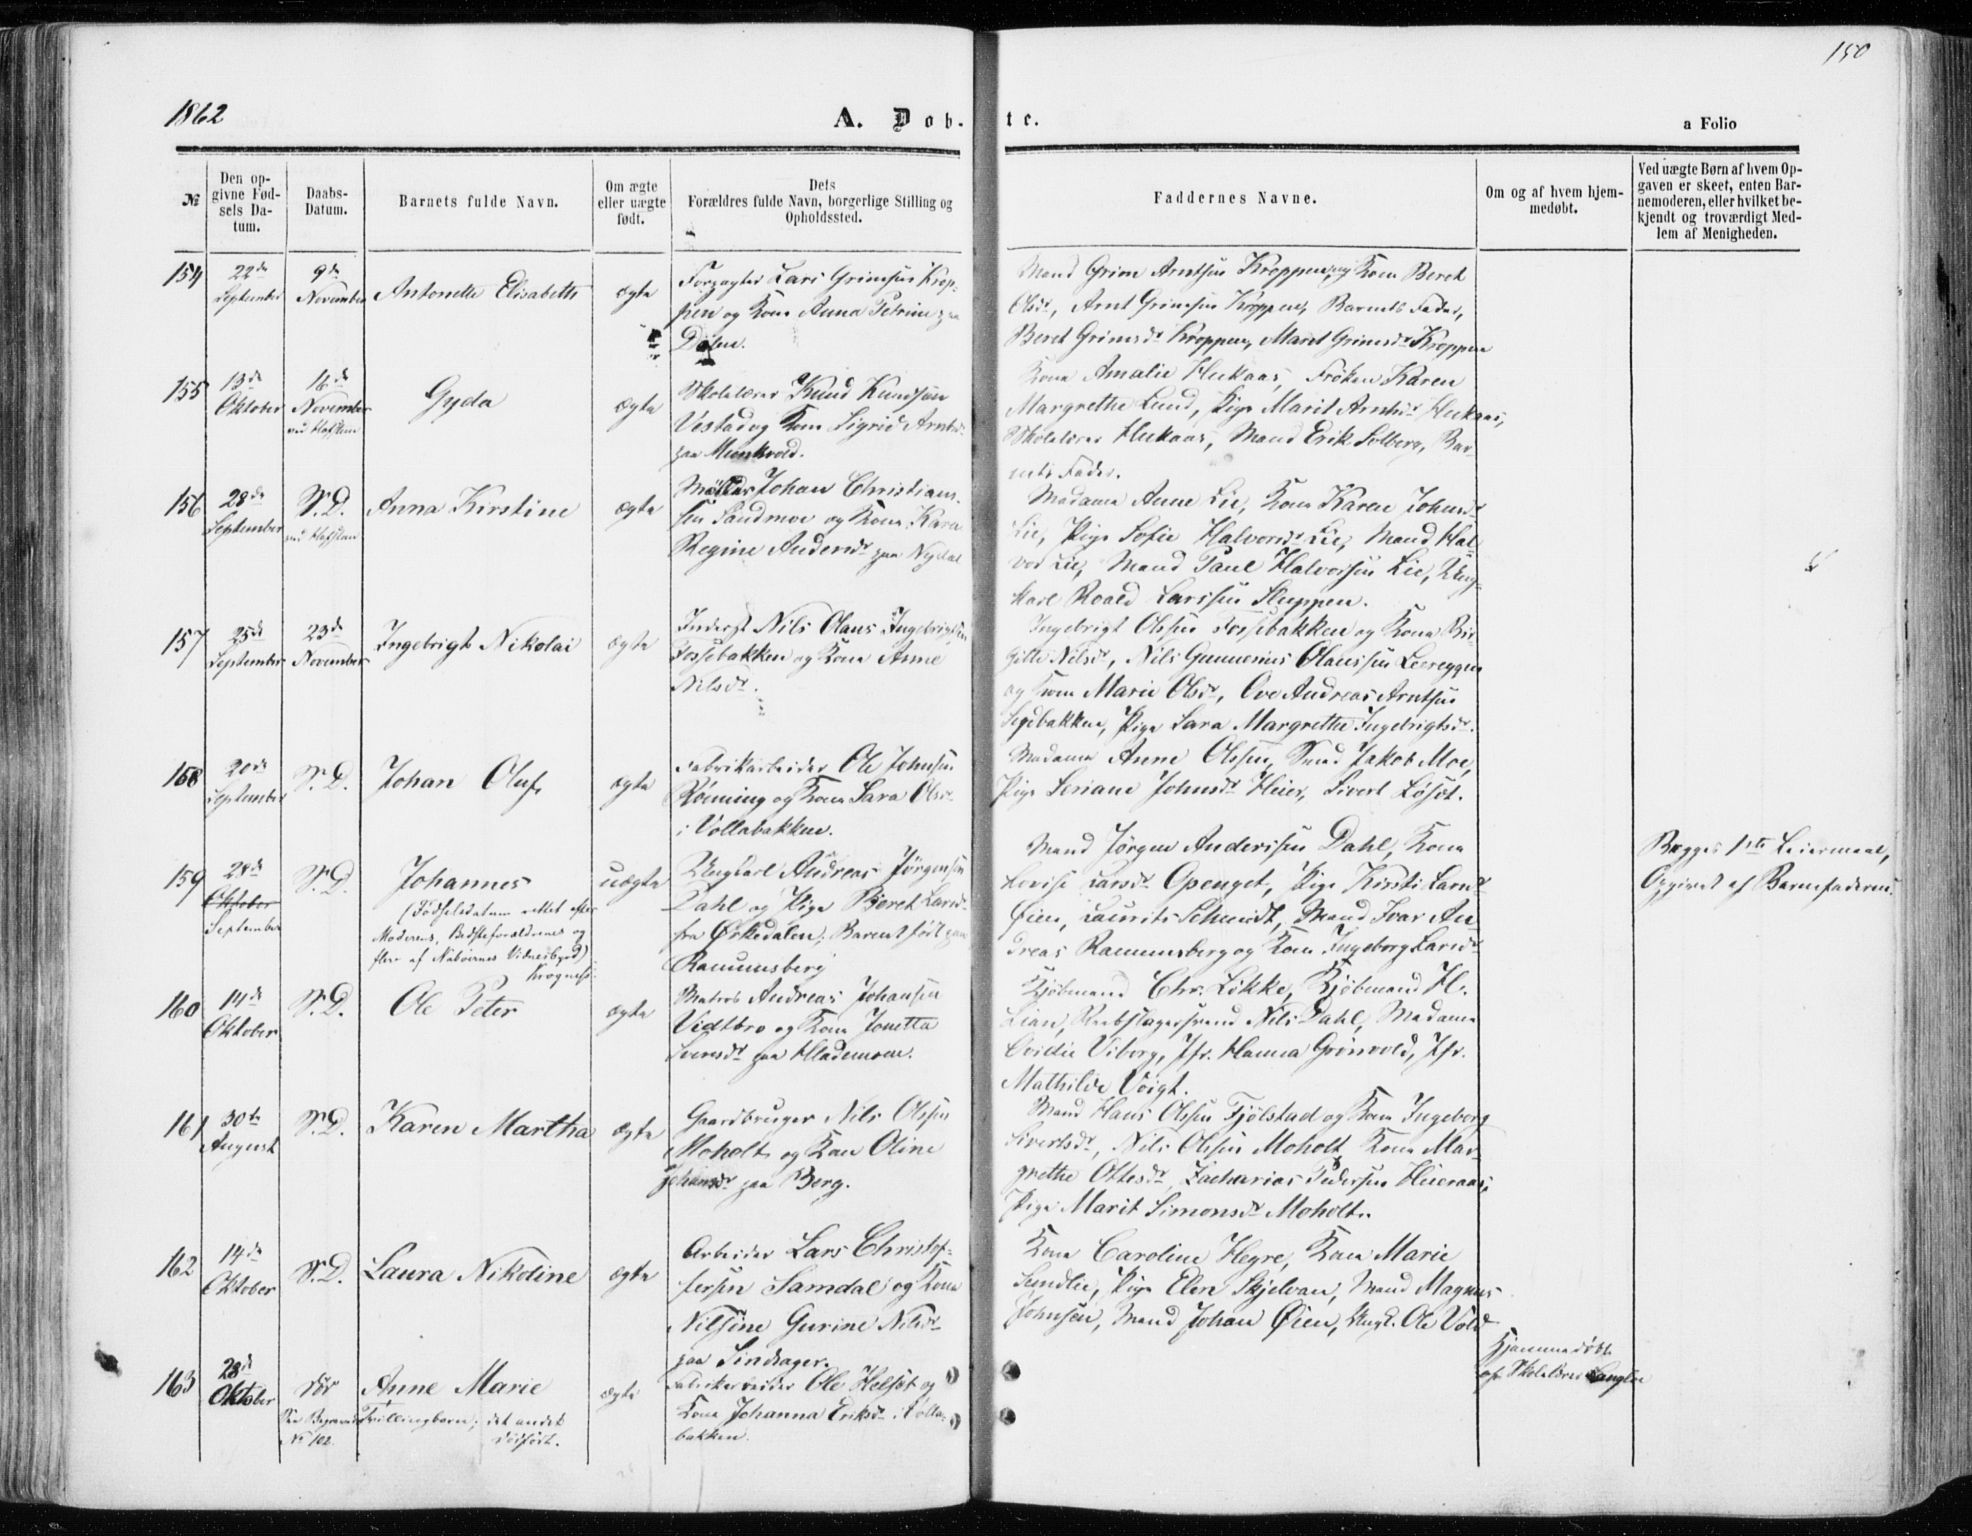 150
1862
A. Døb-
te.
a Folio
№
Den op-
givne Fød-
sels Da-
tum.
Daabs-
Datum.
Barnets fulde Navn.
Om ægte
eller uægte
født.
Dets
Forældres fulde Navn, borgerlige Stilling og
Opholdssted.
Faddernes Navne.
Om og af hvem hjem-
medøbt.
Ved uægte Børn af hvem Op-
gaven er skeet, enten Bar-
nemoderen, eller hvilket be-
kjendt og troværdigt Med-
lem af Menigheden.
154
22de
September
9de
November
Antonette Elisabeth
ægte
Forpagter Lars Grimsen Krop-
pen og Kone Anna Petrine paa
Mand Grim Arntsen Kroppen og Kone Beret
Olsdr, Arnt Grimsen Kroppen, Barnets Fader,
Beret Grimsdr Kroppen, Marit Grimsdr Kroppen
155
13de
Oktober
16de
November
ved Hafstan
Gyda
ægte
Skolelærer Knud Knudsen
Vestad og Kone Sigrid Arntsdr
paa Munkvold.
Kone Amalie Hukaas, Frøken Karen
Margrethe Lund, Pige Marit Arntsdr Hukaas,
Skolelærer Hukaas, Mand Erik Solberg, Bar-
nets Fader.
156
28de
September
S.D.
ved Hafstan
Anna Kirstine
ægte
Møller Johan Christian-
sen Sandmoe og Kone Karen
Regine Andersdr paa Nydal
Madame Anne Lie, Kone Karen Johnsdr
Lie, Pige Sofie Halvorsdr Lie, Mand Hal-
vor Lie, Mand Paul Halvorsen Lie, Ung-
karl Roald Larssen Sluppen.
157
25de
September
23de
November
Ingebrigt Nikolai
ægte
Inderst Nils Olaus Ingebrigtsen
Fossebakken og Kone Anne
Nilsdr.
Ingebrigt Olssen Fossebakken og Kone Bir-
gitte Nilsdr, Nils Gunnerius Olaussen Leereggen
og Kone Marie Olsdr, Ove Andreas Arntsen
Pige Sara Margrethe Ingebrigtsdr.
158
20de
September
S.D.
Johan Oluf
ægte
Fabrikarbeider Ole Johnsen
Rønning og Kone Sara Olsdr
i Vollabakken.
Madame Anne Olssen, Svend Jakob Moe,
Pige Seriane Johnsdr Heier, Sivert Løset.
159
28de
Oktober
September
S.D.
Johannes
(Fødselsdatum rettet efter
Moderens, Bedsteforældrenes og
flere af Naboernes Vidnesbyrd)
uægte
Ungkarl Andreas Jørgensen
Dahl og Pige Beret Larsdr
fra Ørkedalen; Barnet født paa
Ranumsberg
Mand Jørgen Anderssen Dahl, Kone
Lovise Larsdr Openget, Pige Kirsti Larsdr
Øien, Laurits Schmidt, Mand Ivar An-
dreas Ranumsberg og Kone Ingeborg Larsdr
Begges 1ste Leiermaal,
Opgivet af Barnefaderen.
160
14de
Oktober
S.D.
Ole Peter
ægte
Matros Andreas Johansen
Vidtbro og Kone Jonetta
Sivertsdr paa Hlademoen.
Kjøbmand Chr. Løkke, Kjøbmand H.
Lian, Reebslagersvend Nils Dahl, Madame
Ovidie Viborg, Jfr. Hanna Grønvold, Jfr.
Mathilde Voigt.
161
30te
August
S.D.
Karen Martha
ægte
Gaardbruger Nils Olssen
Moholt og Kone Oline
Johansdr paa Berg.
Mand Hans Olssen Fjølstad og Kone Ingeborg
Sivertsdr, Nils Olssen Moholt, Kone Mar-
grethe Ottesdr, Zacharias Pedersen Hieraas,
Pige Marit Simonsdr Moholt.
162
14de
Oktober
S.D.
Laura Nikoline
ægte
Arbeider Lars Christof-
fersen Samdal og Kone
Nilsine Gurine Nilsdr
paa Lindsager.
Kone Caroline Hegre, Kone Marie
Semdlie, Pige Elen Skjelvan, Mand Magnus
Johnsen, Mand Johan Øien, Ungk. Ole Vold
163
28de
Oktober
død
See Begravede
No 102
Anne Marie
Tvillingbarn; det andet
dødfødt.
ægte
Fabrikarbeider Ole Helset og
Kone Johanna Eriksdr i Volla-
bakken.
Hjemmedøbt
af Skolelærer Langlie